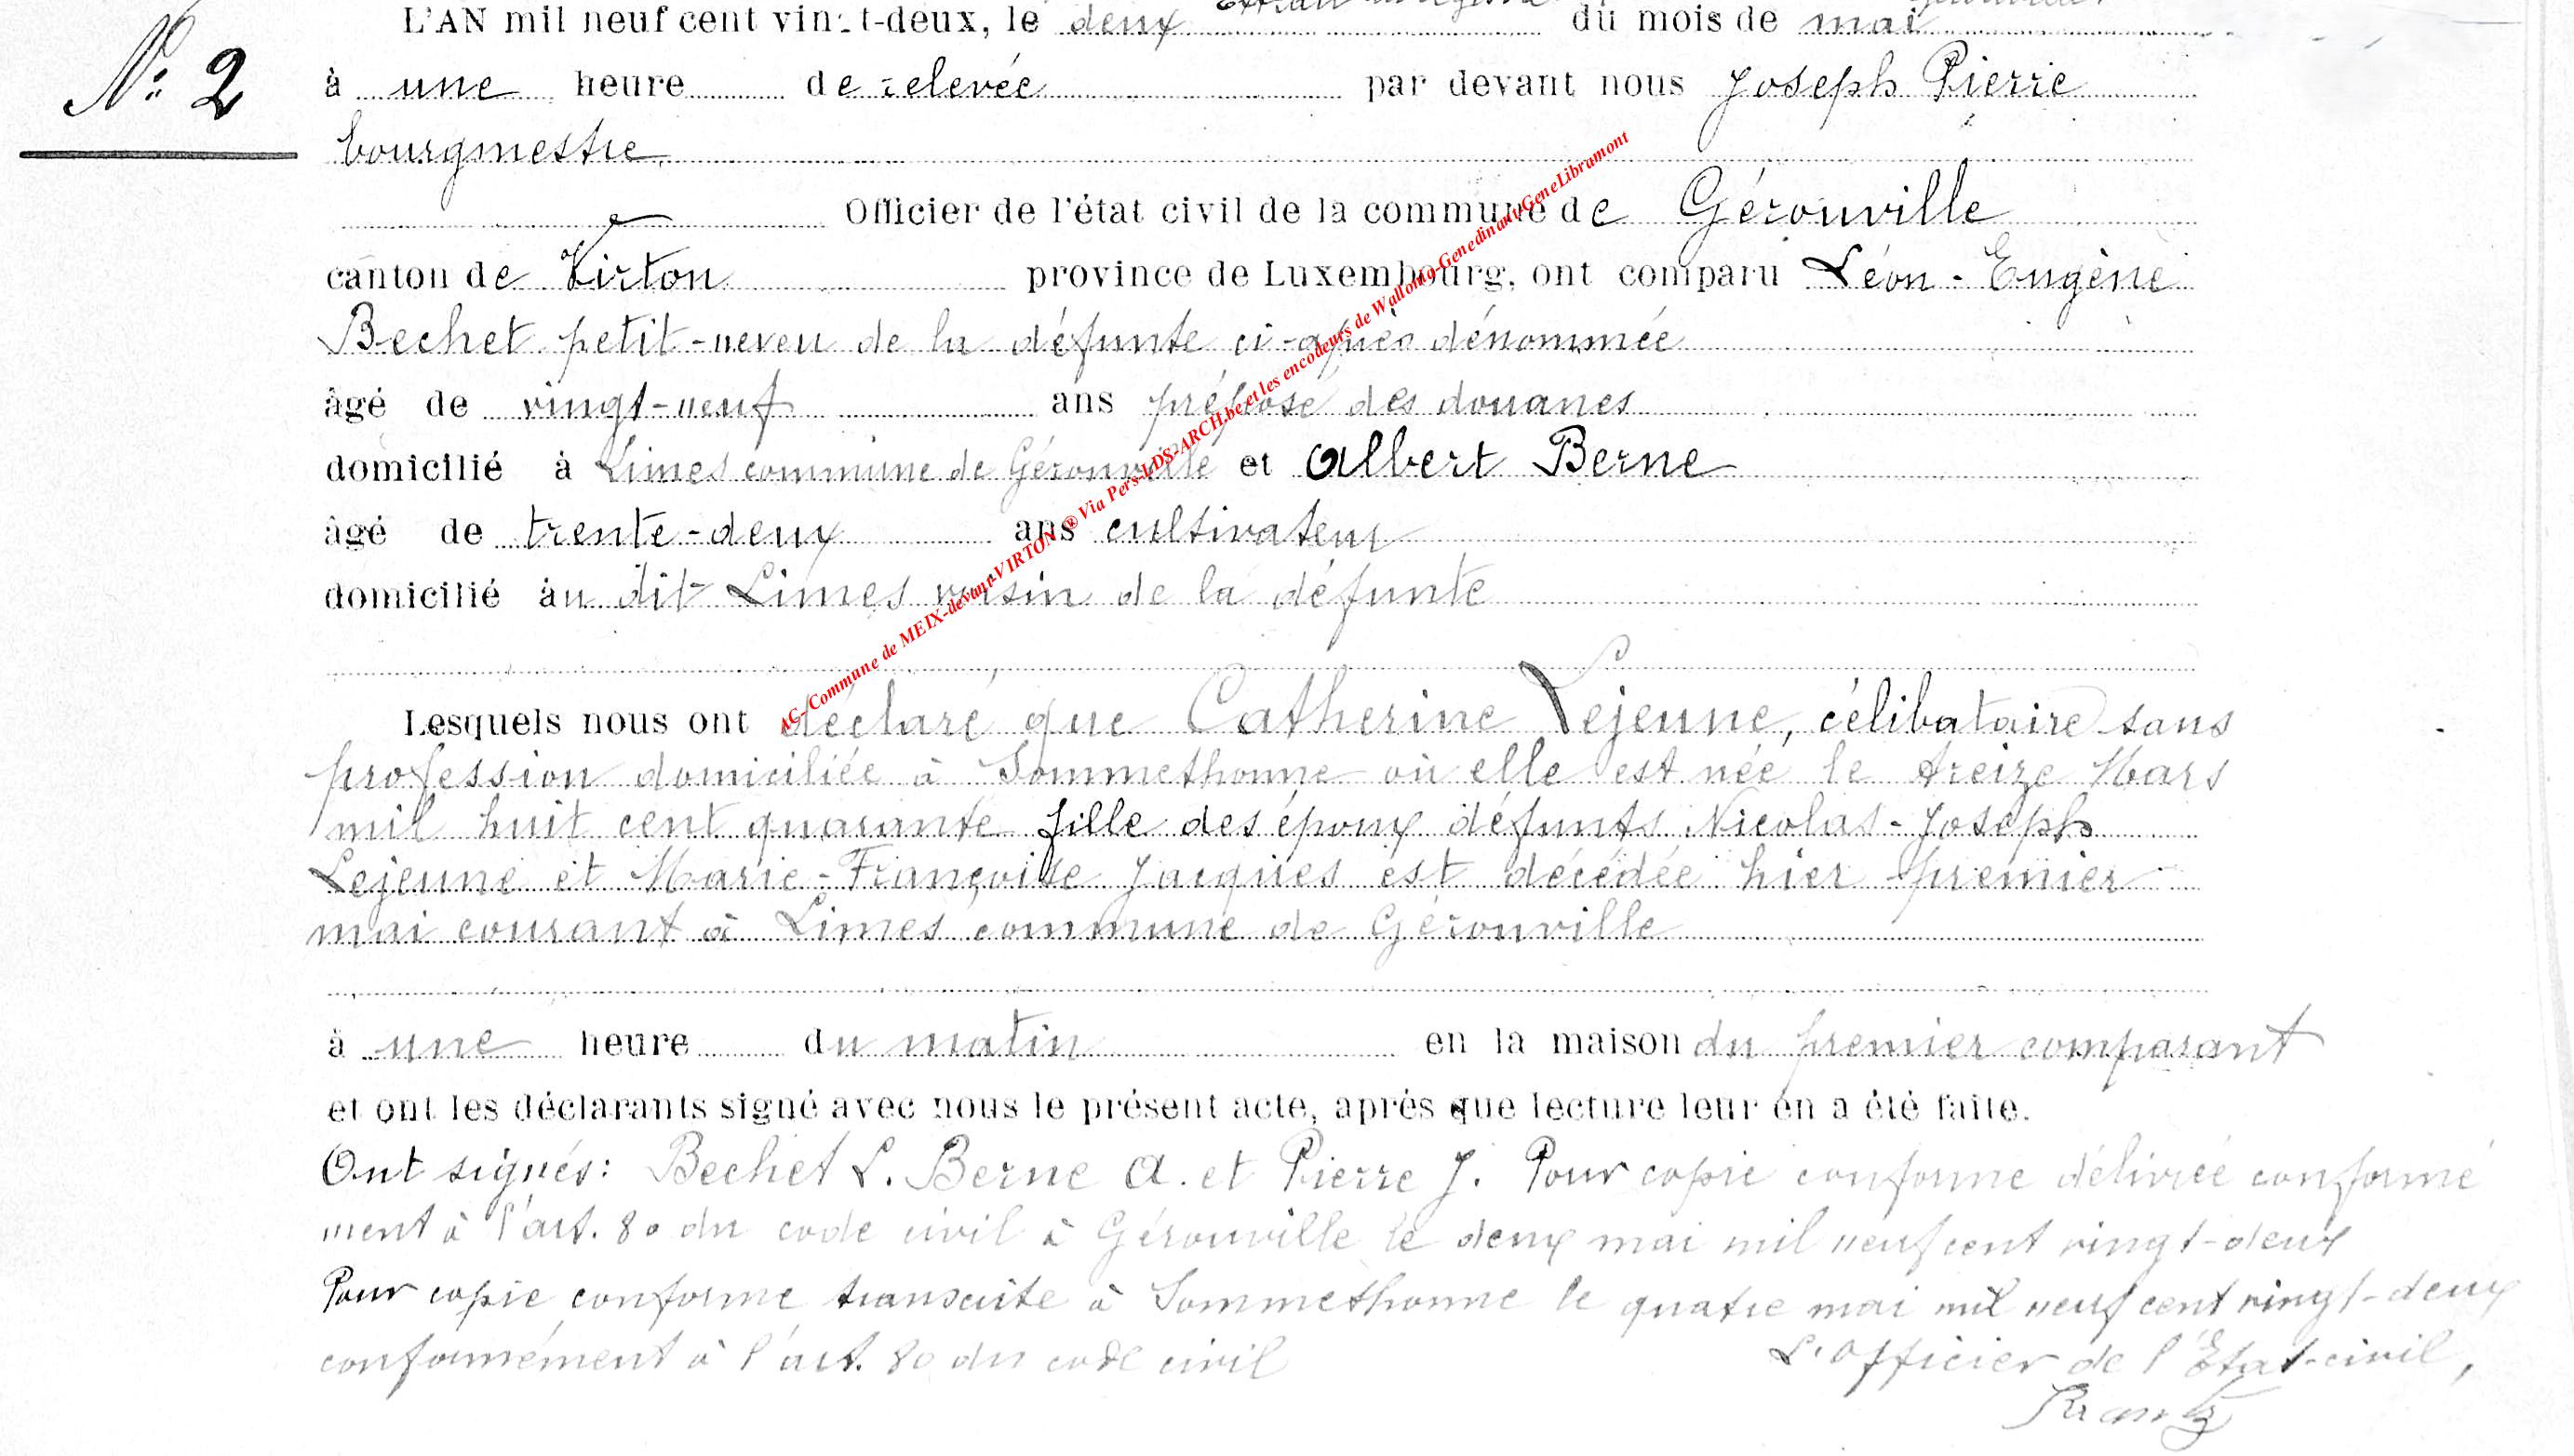 L'AN mil neuf cent vingt-deux, le deux du mois de mai
N° 2
à une heure de relevée par devant nous Joseph Pierre
bourgmestre
Officier de l'état civil de la commune de Gérouville
canton de Virton province de Luxembourg, ont comparu Léon-Eugène
Bechet petit-neveu de la défunte ci-après dénommée
âgé de vingt-neuf ans préposé des douanes
domicilié à Limes commune de Gérouville et Albert Berne
âgé de trente-deux ans cultivateur
domicilié au dit Limes voisin de la défunte
Lesquels nous ont déclaré que Catherine Lejeune, célibataire sans
profession domiciliée à Sommethonne où elle est née le treize Mars
mil huit cent quarante fille des époux défunts Nicolas-Joseph
Lejeune et Marie-Françoise Jacques est décédée hier premier
mai courant à Limes commune de Gérouville
à une heure du matin en la maison du premier comparant
et ont les déclarants signé avec nous le présent acte, après que lecture leur en a été faite.
Ont signés: Bechet L. Berne A. et Pierre J. Pour copie conforme délivrée conformé
ment à l'art. 80 du code civil à Gérouville le deux mai mil neuf cent vingt-deux
Pour copie conforme transcrite à Sommethonne le quatre mai mil neuf cent vingt-deux
conformément à l'art. 80 du code civil L'officier de l'Etat-civil,
AG- Commune de MEIX-devant-VIRTON ® Via Pers-LDS-ARCH.be et les encodeurs de Wallonia-Genedinant-GeneLibramont